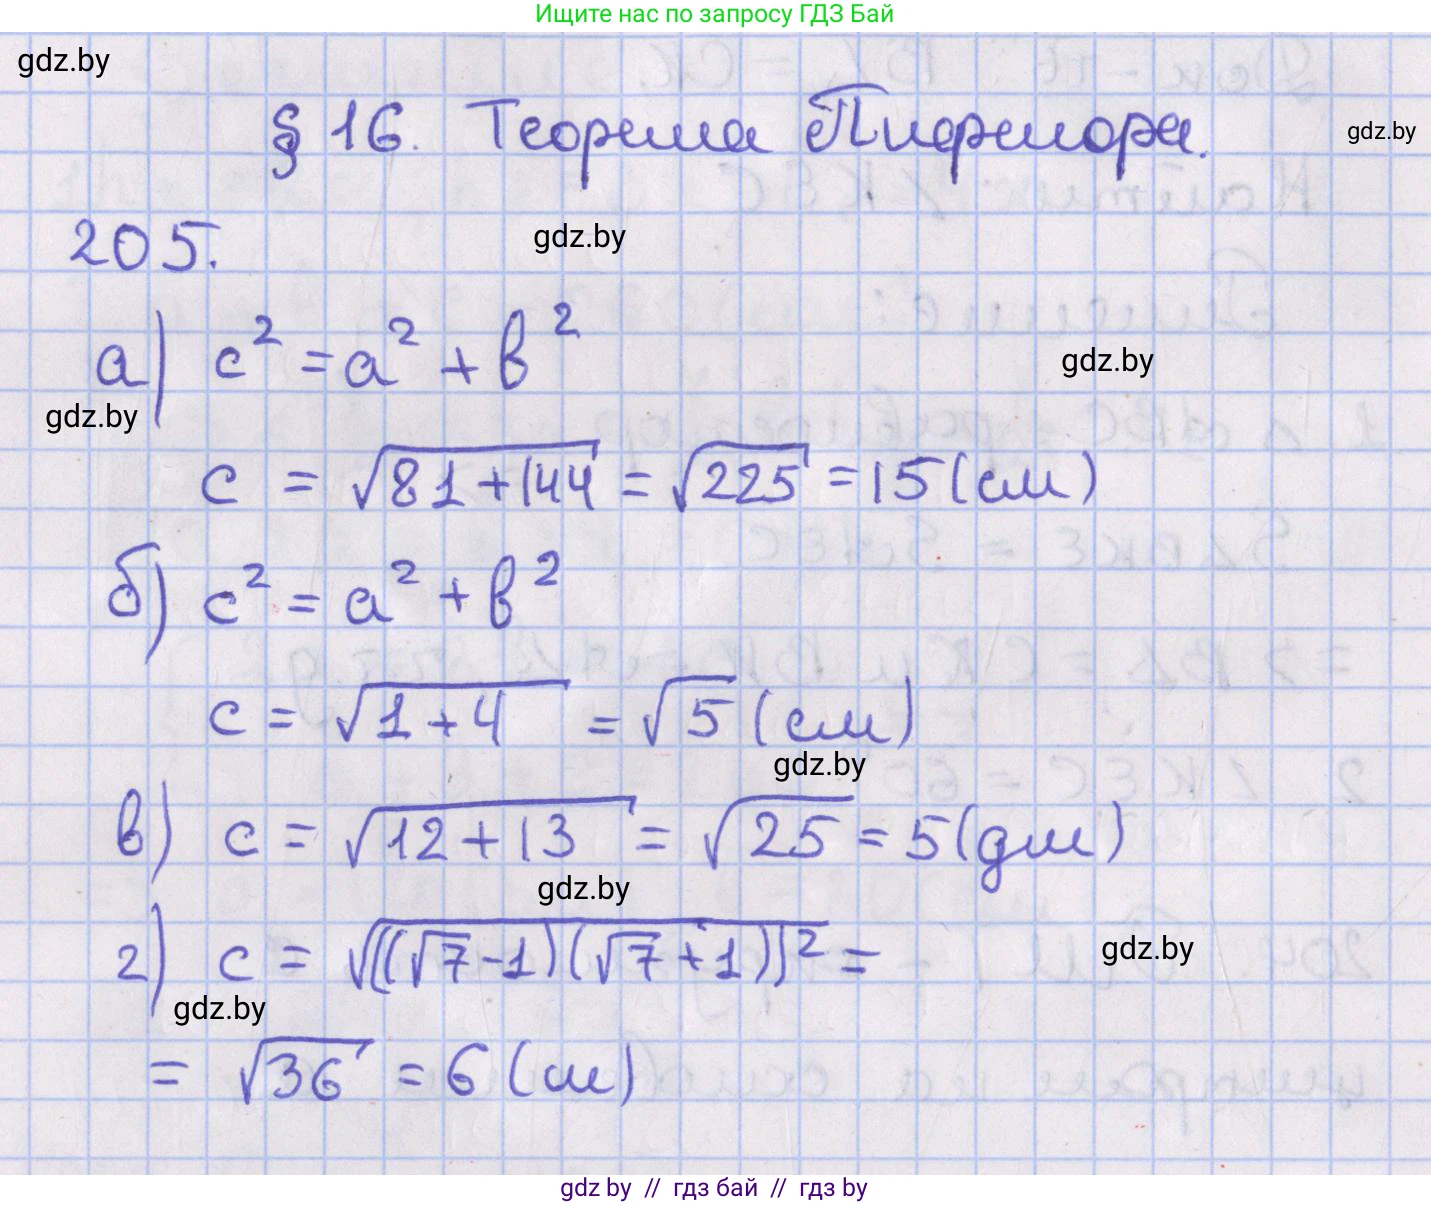 Ищите нас по запросу ГДЗ Бай
gdz.by
§ 16. Теорема Пифагора.
gdz.by
205.
gdz.by
а) c² = a² + b²
gdz.by
gdz.by
c = √81+144 = √225 = 15 (см)
б) c² = a² + b²
c = √1+4 = √5 (см)
gdz.by
в) c = √12+13 = √25 = 5 (дм)
gdz.by
г) c = √[(√7-1)(√7+1)]² =
gdz.by
gdz.by
= √36 = 6 (см)
gdz by // гдз бай // гдз by